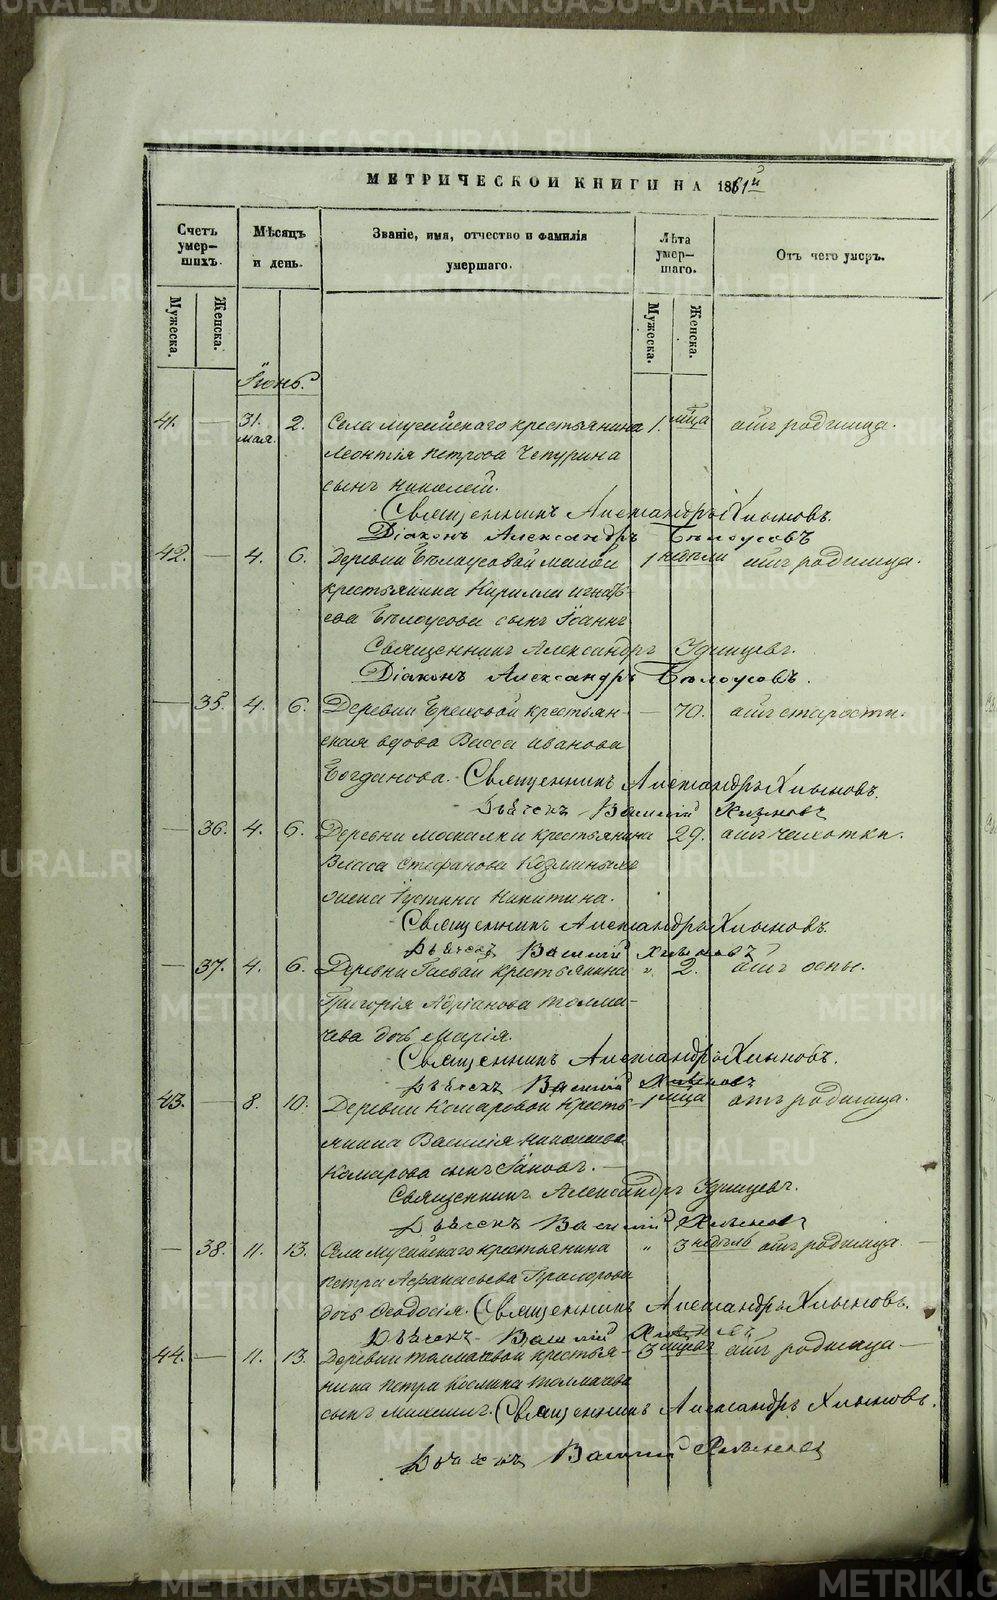 МЕТРИЧЕСКОЙ КНИГИ НА 1861й
Счетъ умер- шихъ.
Мѣсяцъ и день.
Званіе, имя, отчество и фамилія умершаго.
Лѣта умер- шаго.
Отъ чего умеръ.
Мужеска.
Женска.
Мужеска.
Женска.
Іюнь.
41. — 31. мая. 2. Села крестьянина 1. мца отъ родимца.
Леонтія Петрова Чепурина
сынъ Николай.
Священникъ Александръ Хлыновъ.
Діаконъ Александръ Бѣлоусовъ
42. — 4. 6. Деревни Бѣлоусовой
1 недѣли отъ родимца.
крестьянина Кирилла Игнатъ-
ева Бѣлоусова сынъ Іоаннъ
Священникъ Александръ Удинцевъ.
Діаконъ Александръ Бѣлоусовъ.
— 35. 4. 6. Деревни Ереховой крестьян- — 70. отъ старости.
ская вдова Васса Иванова
Богданова. Священникъ Александръ Хлыновъ.
Дьячекъ Василій Хлыновъ
— 36. 4. 6. Деревни Москалки крестьянина 29. отъ чахотки.
Власа Стефанова Козминыхъ
жена Іустина Никитина.
Священникъ Александръ Хлыновъ
Дьячекъ Василій Хлыновъ
— 37. 4. 6. Деревни Гаевой крестьянина " 2. отъ оспы.
Григорія Адріанова Толма-
чева дочь Марія.
Священникъ Александръ Хлыновъ.
Дьячекъ Василій Хлыновъ
43. — 8. 10. Деревни Комаровой кресть- 1 мца отъ родимца.
янина Василія Николаева
Комарова сынъ Іаковъ. —
Священникъ Александръ Удинцевъ.
Дьячекъ Василій Хлыновъ
— 38. 11. 13. Села крестьянина " 3 недѣль отъ родимца. —
Петра Афанасьева Прохорова
дочь Феодосія. Священникъ Александръ Хлыновъ.
Дьячекъ Василій Хлыновъ
44. — 11. 13. Деревни Толмачевой крестья- 3 мцевъ отъ родимца —
нина Петра Козмина Толмачева
сынъ Михаилъ. Священникъ Александръ Хлыновъ.
Дьячекъ Василій Хлыновъ
METRIKI.GASO-URAL.RU